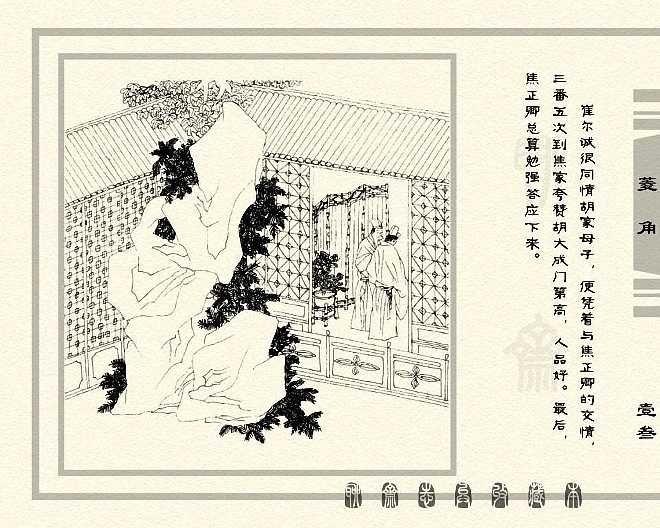 崔尔诚很同情胡家母子，便凭着与焦正卿的交情，
三番五次到焦家夸赞胡大成门第高，人品好。最后，
焦正卿总算勉强答应下来。
菱角
壹叁
聊斋志异收藏本